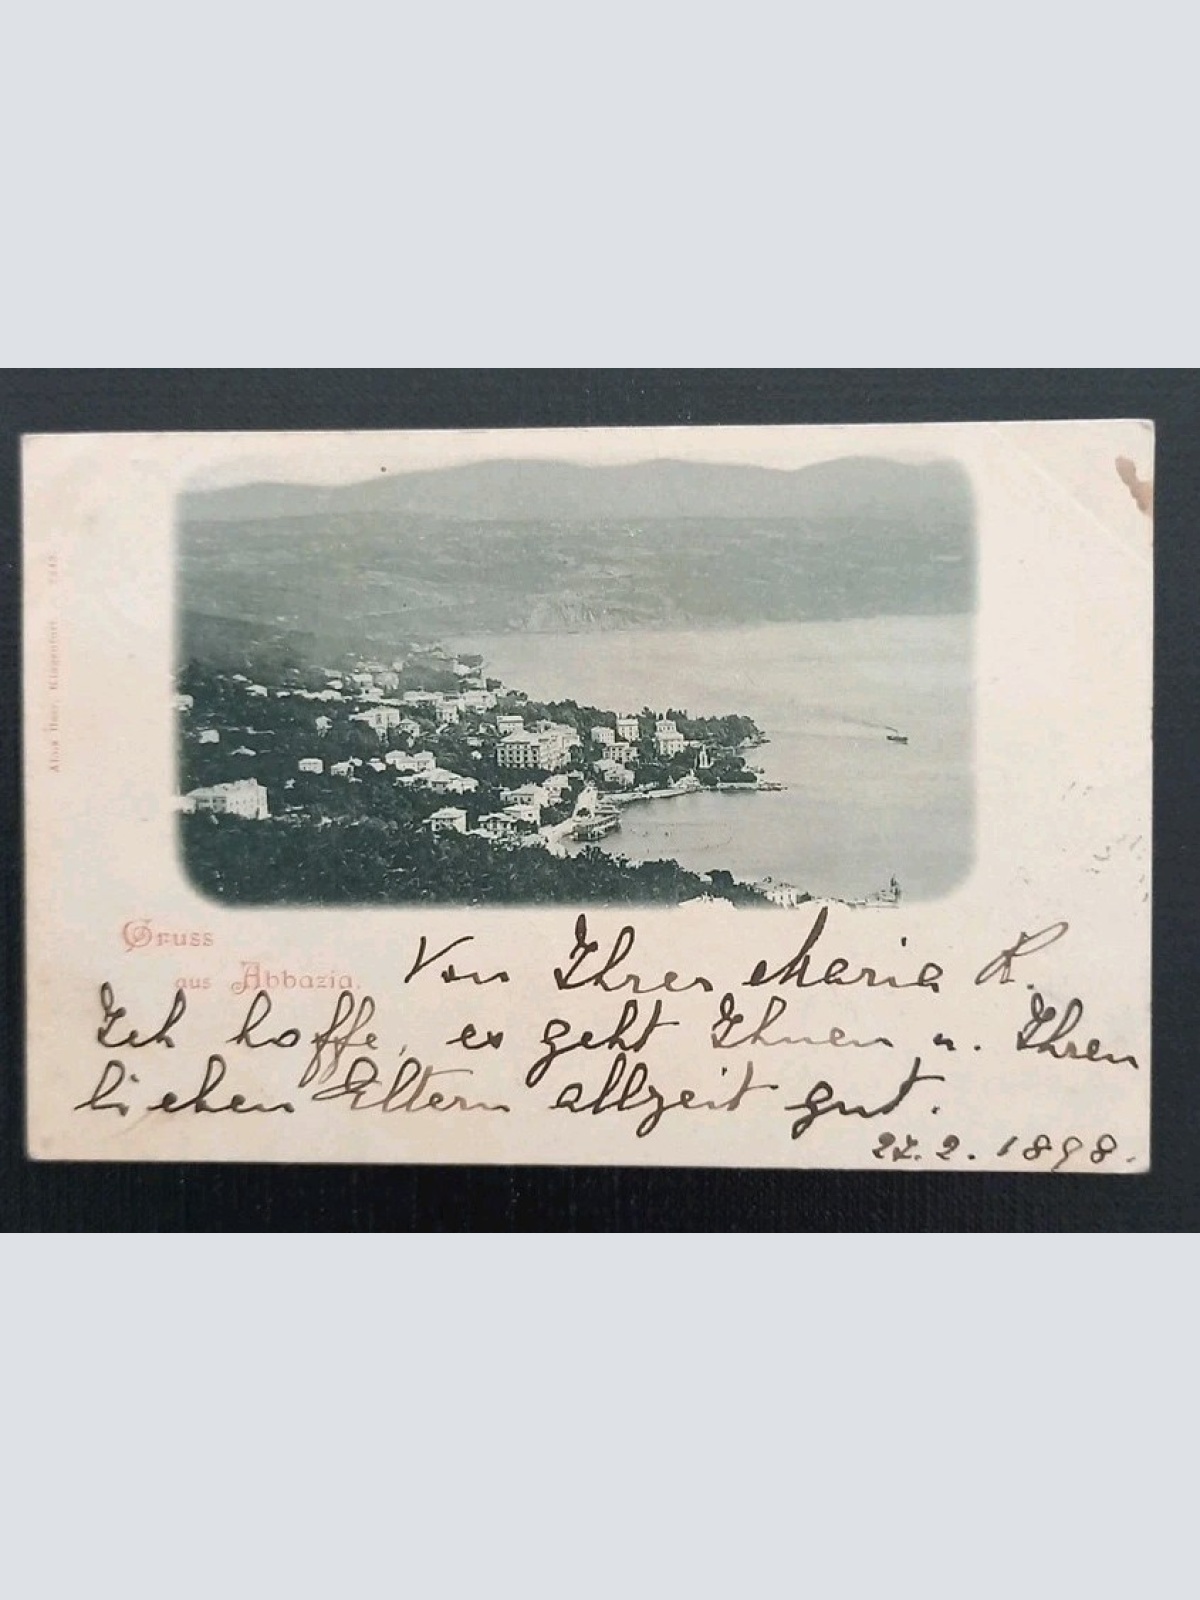 Alois Beer, Klagenfurt.
Gruss
aus Abbazia.
Von Ihrer Maria R.
Ich hoffe, es geht Ihnen u. Ihren
lieben Eltern allzeit gut.
27.2.1898.